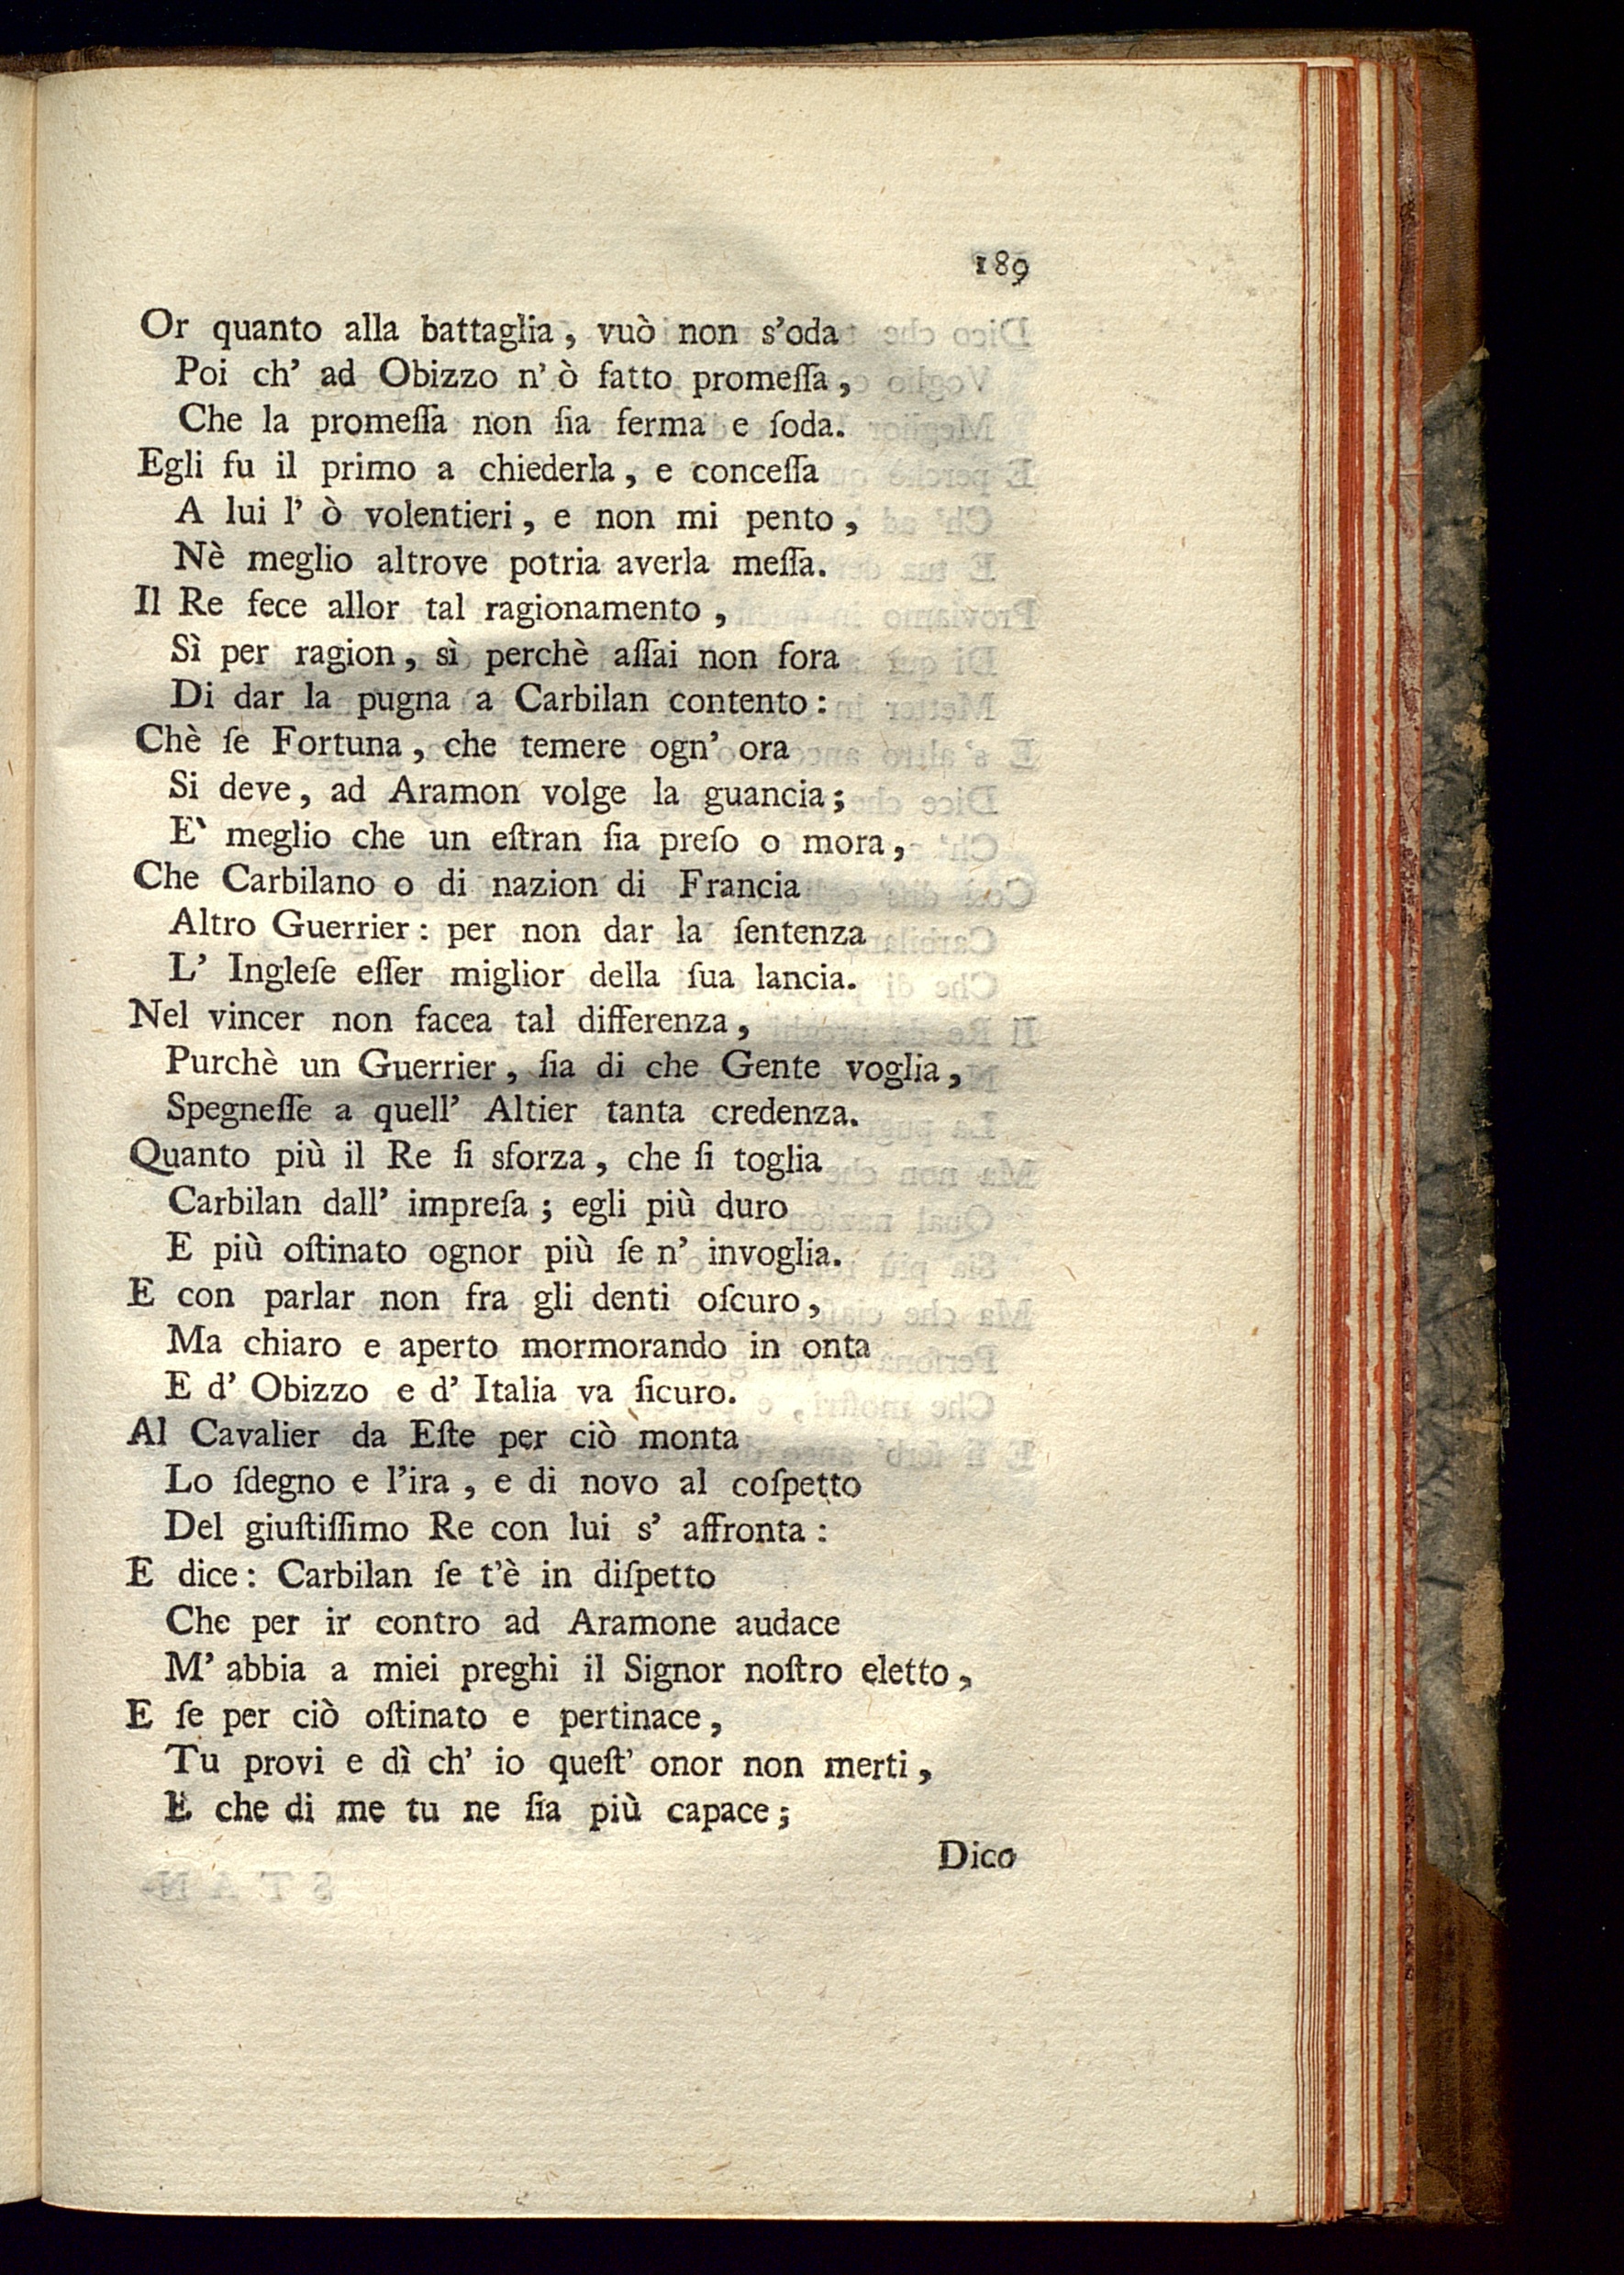 189
Or quanto alla battaglia, vuò non s'oda
Poi ch' ad Obizzo n' ò fatto promeſſa,
Che la promeſſa non ſia ferma e ſoda.
Egli fu il primo a chiederla, e conceſſa
A lui l' ò volentieri, e non mi pento,
Nè meglio altrove potria averla meſſa.
Il Re fece allor tal ragionamento,
Sì per ragion, sì perchè aſſai non fora
Di dar la pugna a Carbilan contento:
Chè ſe Fortuna, che temere ogn' ora
Si deve, ad Aramon volge la guancia;
E` meglio che un eſtran ſia preſo o mora,
Che Carbilano o di nazion di Francia
Altro Guerrier: per non dar la ſentenza
L' Ingleſe eſſer miglior della ſua lancia.
Nel vincer non facea tal differenza,
Purchè un Guerrier, ſia di che Gente voglia,
Spegneſſe a quell' Altier tanta credenza.
Quanto più il Re ſi sforza, che ſi toglia
Carbilan dall' impreſa; egli più duro
E più oſtinato ognor più ſe n' invoglia.
E con parlar non fra gli denti oſcuro,
Ma chiaro e aperto mormorando in onta
E d' Obizzo e d' Italia va ſicuro.
Al Cavalier da Eſte per ciò monta
Lo ſdegno e l'ira, e di novo al coſpetto
Del giuſtiſſimo Re con lui s' affronta:
E dice: Carbilan ſe t'è in diſpetto
Che per ir contro ad Aramone audace
M' abbia a miei preghi il Signor noſtro eletto,
E ſe per ciò oſtinato e pertinace,
Tu provi e dì ch' io queſt' onor non merti,
E che di me tu ne ſia più capace;
Dico